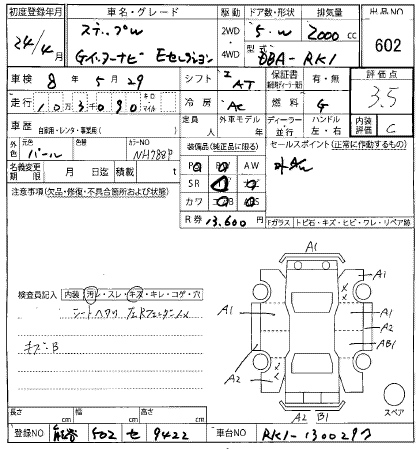 初度登録年月
24/4月
車名・グレード
ステップW
G インターナビ Eセレクション
駆動
2WD
4WD
ドア数・形状
5・W
排気量
2000 cc
型式
DBA-RK1
出品NO
602
車検 8年5月29
走行 103090 キロ・マイル
シフト AT
冷房 AC
保証書
有・無
燃料 G
評価点
3.5
車歴 自家用・レンタ・事業用( )
定員 人
外車モデル 年
ディーラー 並行
ハンドル 左・右
内装評価 C
色 元色 パール
色替
カラーNO NH788P
名義変更期限 月 日迄
積載量 t
装備品(純正品に限る)
PS PW AW
SR
カワ
R券 13,600円
セールスポイント(正常に作動するもの)
注意事項(欠品・修復・不具合箇所および状態)
Fガラス トビ石・キズ・ヒビ・ワレ・リペア跡
検査員記入 内装 汚レ・スレ・キズ・キレ・コゲ・穴
キズ・B
A1
A1
A1
A1
A2
A2
AB1
A2
A2 B1
スペア
長さ cm
幅 cm
高さ cm
登録NO 502 セ 9422
車台NO RK1-1300297